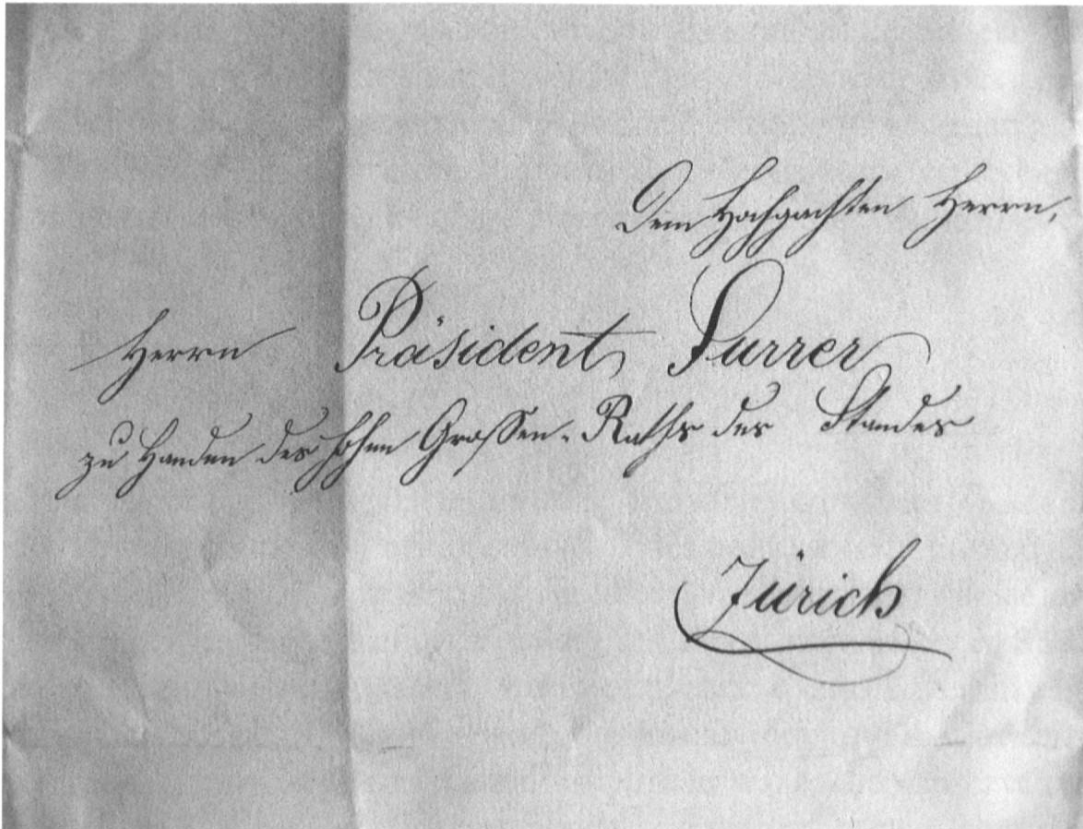 Dem Hochgeachten Herrn,
Herrn Präsident Furrer
zu Handen des hohen Großen-Raths des Standes
Zürich